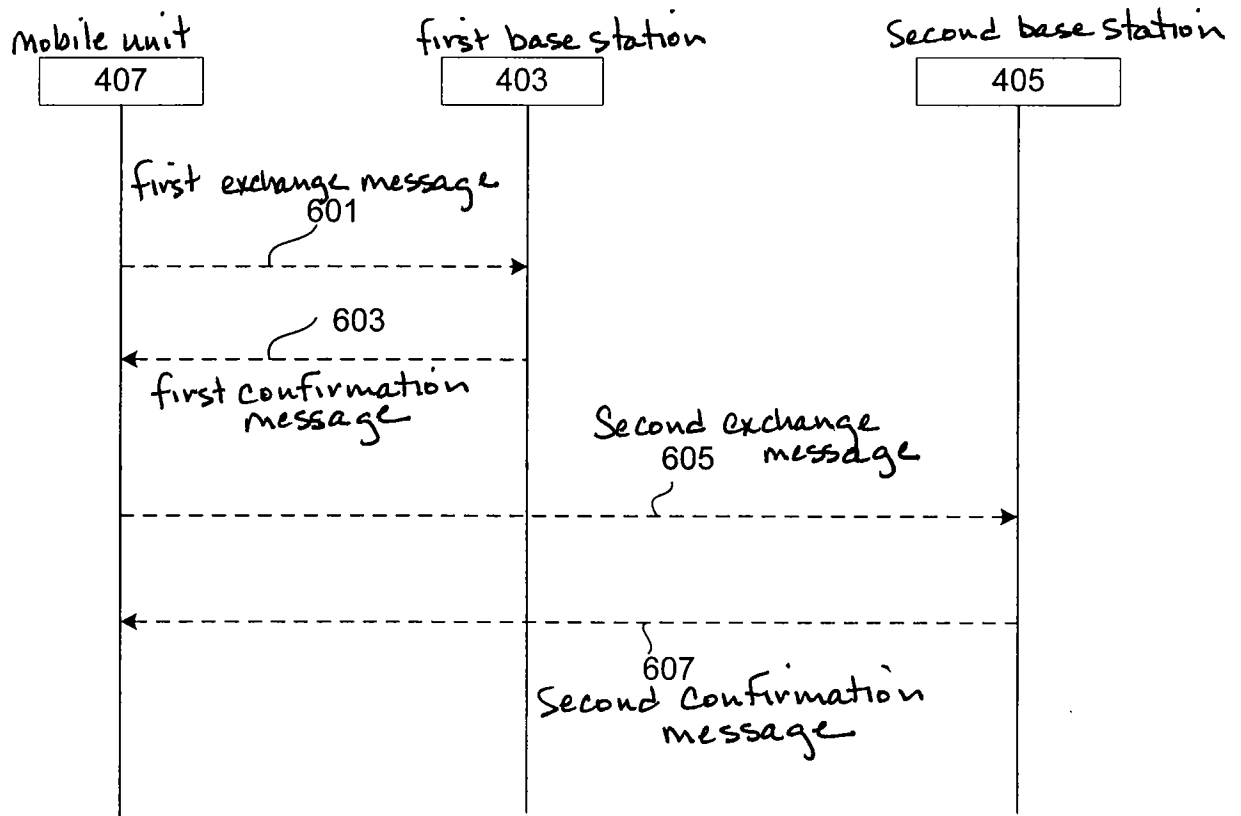 Mobile unit
first base station
Second base station
407
403
405
first exchange message
601
603
first confirmation
message
Second exchange
message
605
607
Second confirmation
message